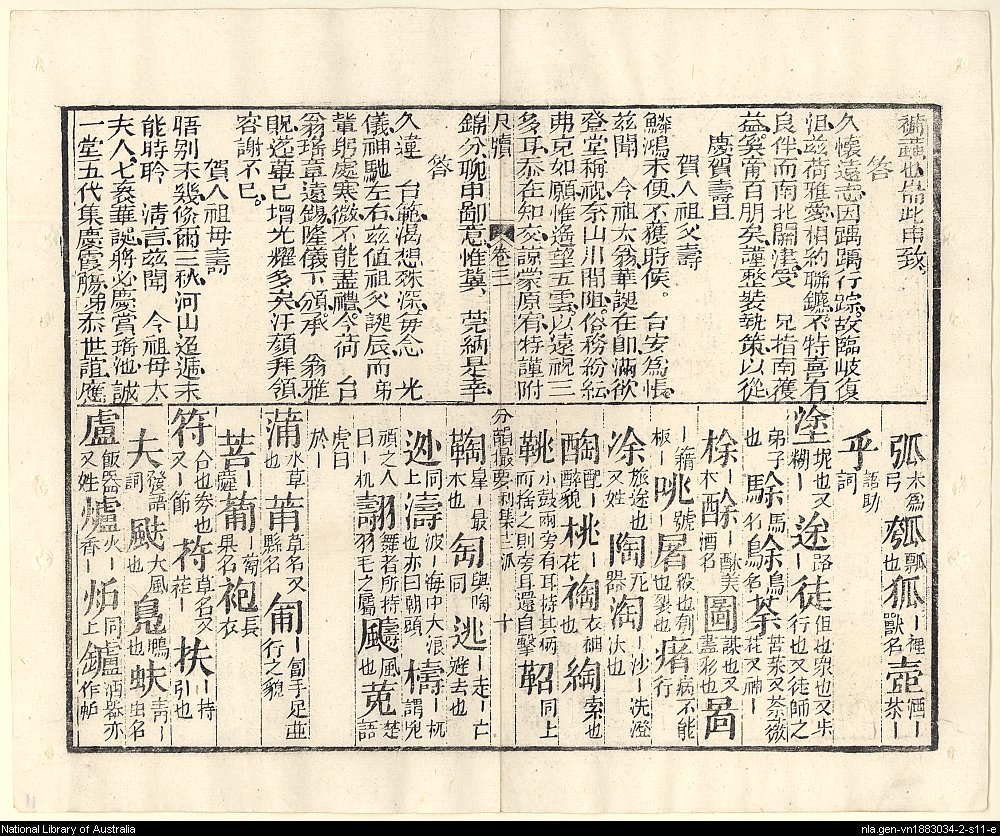 補蔬也耑此申致
答
久懷遠志因踽踽行踪故臨岐復
沮茲荷雅愛相約聯鑣不特喜有
良伴而南北關津受 兄指南獲
益奚啻百朋矣謹整裝執策以從
慶賀壽旦
賀人祖父壽
鱗鴻未便不獲時候 台安爲悵
茲聞 今祖太翁華誕在卽滿欲
登堂稱祝奈山川間阻俗務紛紜
弗克如願惟遙望五雲以遠祝三
多耳忝在知交諒蒙原宥特謹附
尺牘 卷三
錦分聊申鄙意惟冀 莞納是幸
答
久違 台範渴想殊深毎念 光
儀神馳左右茲值祖父誕辰而弟
輩躬處寒微不能盡禮今荷 台
翁瑤章遠錫隆儀下頒承 翁雅
貺蓬蓽已增光耀多矣汗顏拜領
容謝不巳
賀人祖母壽
晤别未幾倐爾三秋河山迢遞未
能時聆 淸言茲聞 今祖母太
夫人七袠華誕將必慶賞瑤池誠
一堂五代集慶霞觴弟忝世誼應
弧木爲弓 瓠瓢也 狐獸名 壺酒茶
乎語助詞
塗圬也又糊 途路 徒但也衆也又步行也又徒師之
弟子也 駼馬名 鵌鳥名 荼苦菜又荼薇花又神
梌木 酴酒名 圖謀也又畫彩也 啚
板 咷號 屠殺也刳也裂也 瘏病不能行
涂旅途也又姓 陶器 淘沙洗澄汰也
酶配醉貌 桃花 裪衣袖也 綯索也
鞉小鼓兩旁有耳持其柄而搖之則旁耳還自擊 鞀同上
分韻撮要利集十二派 十
鞠星最木也 匋與陶同 逃走亡避去也
迯同上 濤波海中大浪也亦曰朝頭 檮杌謂兇
頑之人曰杌 翿舞者所持羽毛之屬 飍風也 菟楚語
虎曰於
蒲水草也 莆草名又縣名 匍匐手足並行之貌
菩薩 葡萄果名 袍長衣
符合也劵也又節 苻草名又萑 扶持引也
夫發語詞 颫大風也 鳧鴨也 蚨靑虫名
盧飯器又姓 爐火香 炉同上 鑪酒器亦作鈩
National Library of Australia
nla.gen-vn1883034-2-s11-e